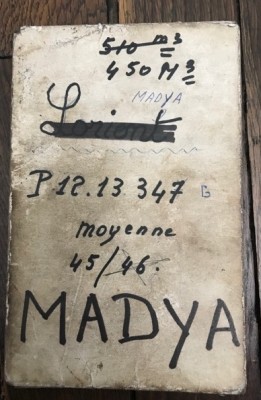 510 m3
450 M3
MADYA
Loriont
P 12.13 347 B
moyenne
45/46.
MADYA